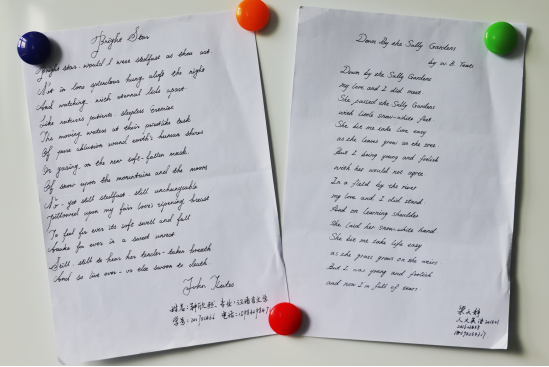 Bright Star
Bright star, would I were stedfast as thou art.
Not in lone splendour hung aloft the night
And watching, with eternal lids apart.
Like nature's patient, sleepless Eremite
The moving waters at their priestlike task
Of pure ablution round earth's human shores
Or gazing on the new soft-fallen mask.
Of snow upon the mountains and the moors
No - yet still stedfast. still unchangeable
pillowed upon my fair love's ripening breast
To feel for ever its soft swell and fall
Awake for ever in a sweet unrest
Still. still to hear her tender-taken breath
And so live ever - or else swoon to death
John Keats
专业:汉语言文学
学号: 电话:
Down By the Sally Gardens
by W. B. Yeats
Down by the Sally Gardens
my love and I did meet
She passed the Sally Gardens
with little snow-white feet
She bid me take love easy
as the leaves grow on the tree
But I being young and foolish
with her would not agree
In a field by the river
my love and I did stand
And on leaning shoulder
She laid her snow-white hand
She bid me take life easy
as the grass grows on the weirs
But I was young and foolish
and now I'm full of tears